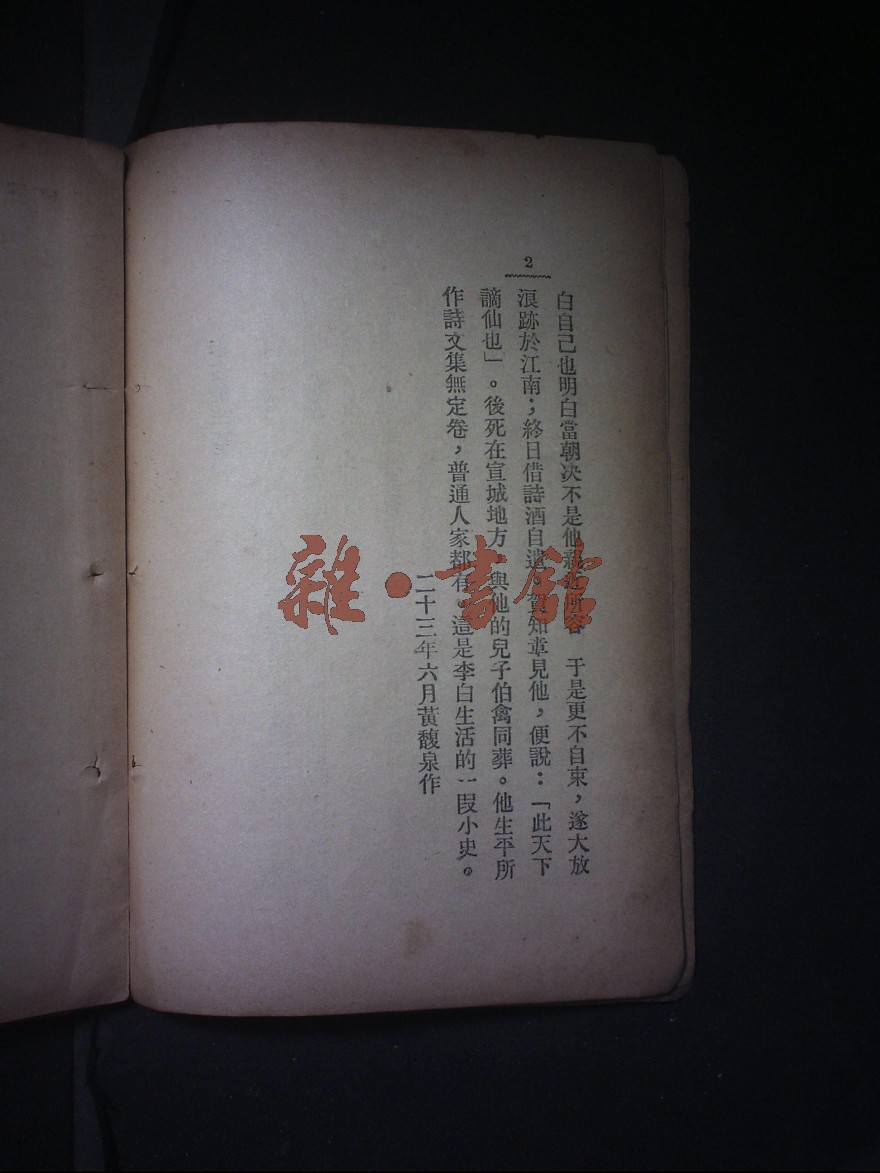 2
白自己也明白當朝决不是他親近所容　于是更不自束，遂大放
浪跡於江南；終日借詩酒自遣。賀知章見他，便說：「此天下
謫仙也」。後死在宣城地方，與他的兒子伯禽同葬。他生平所
作詩文集無定卷，普通人家都有。這是李白生活的一段小史。
二十三年六月黃馥泉作
雜·書館